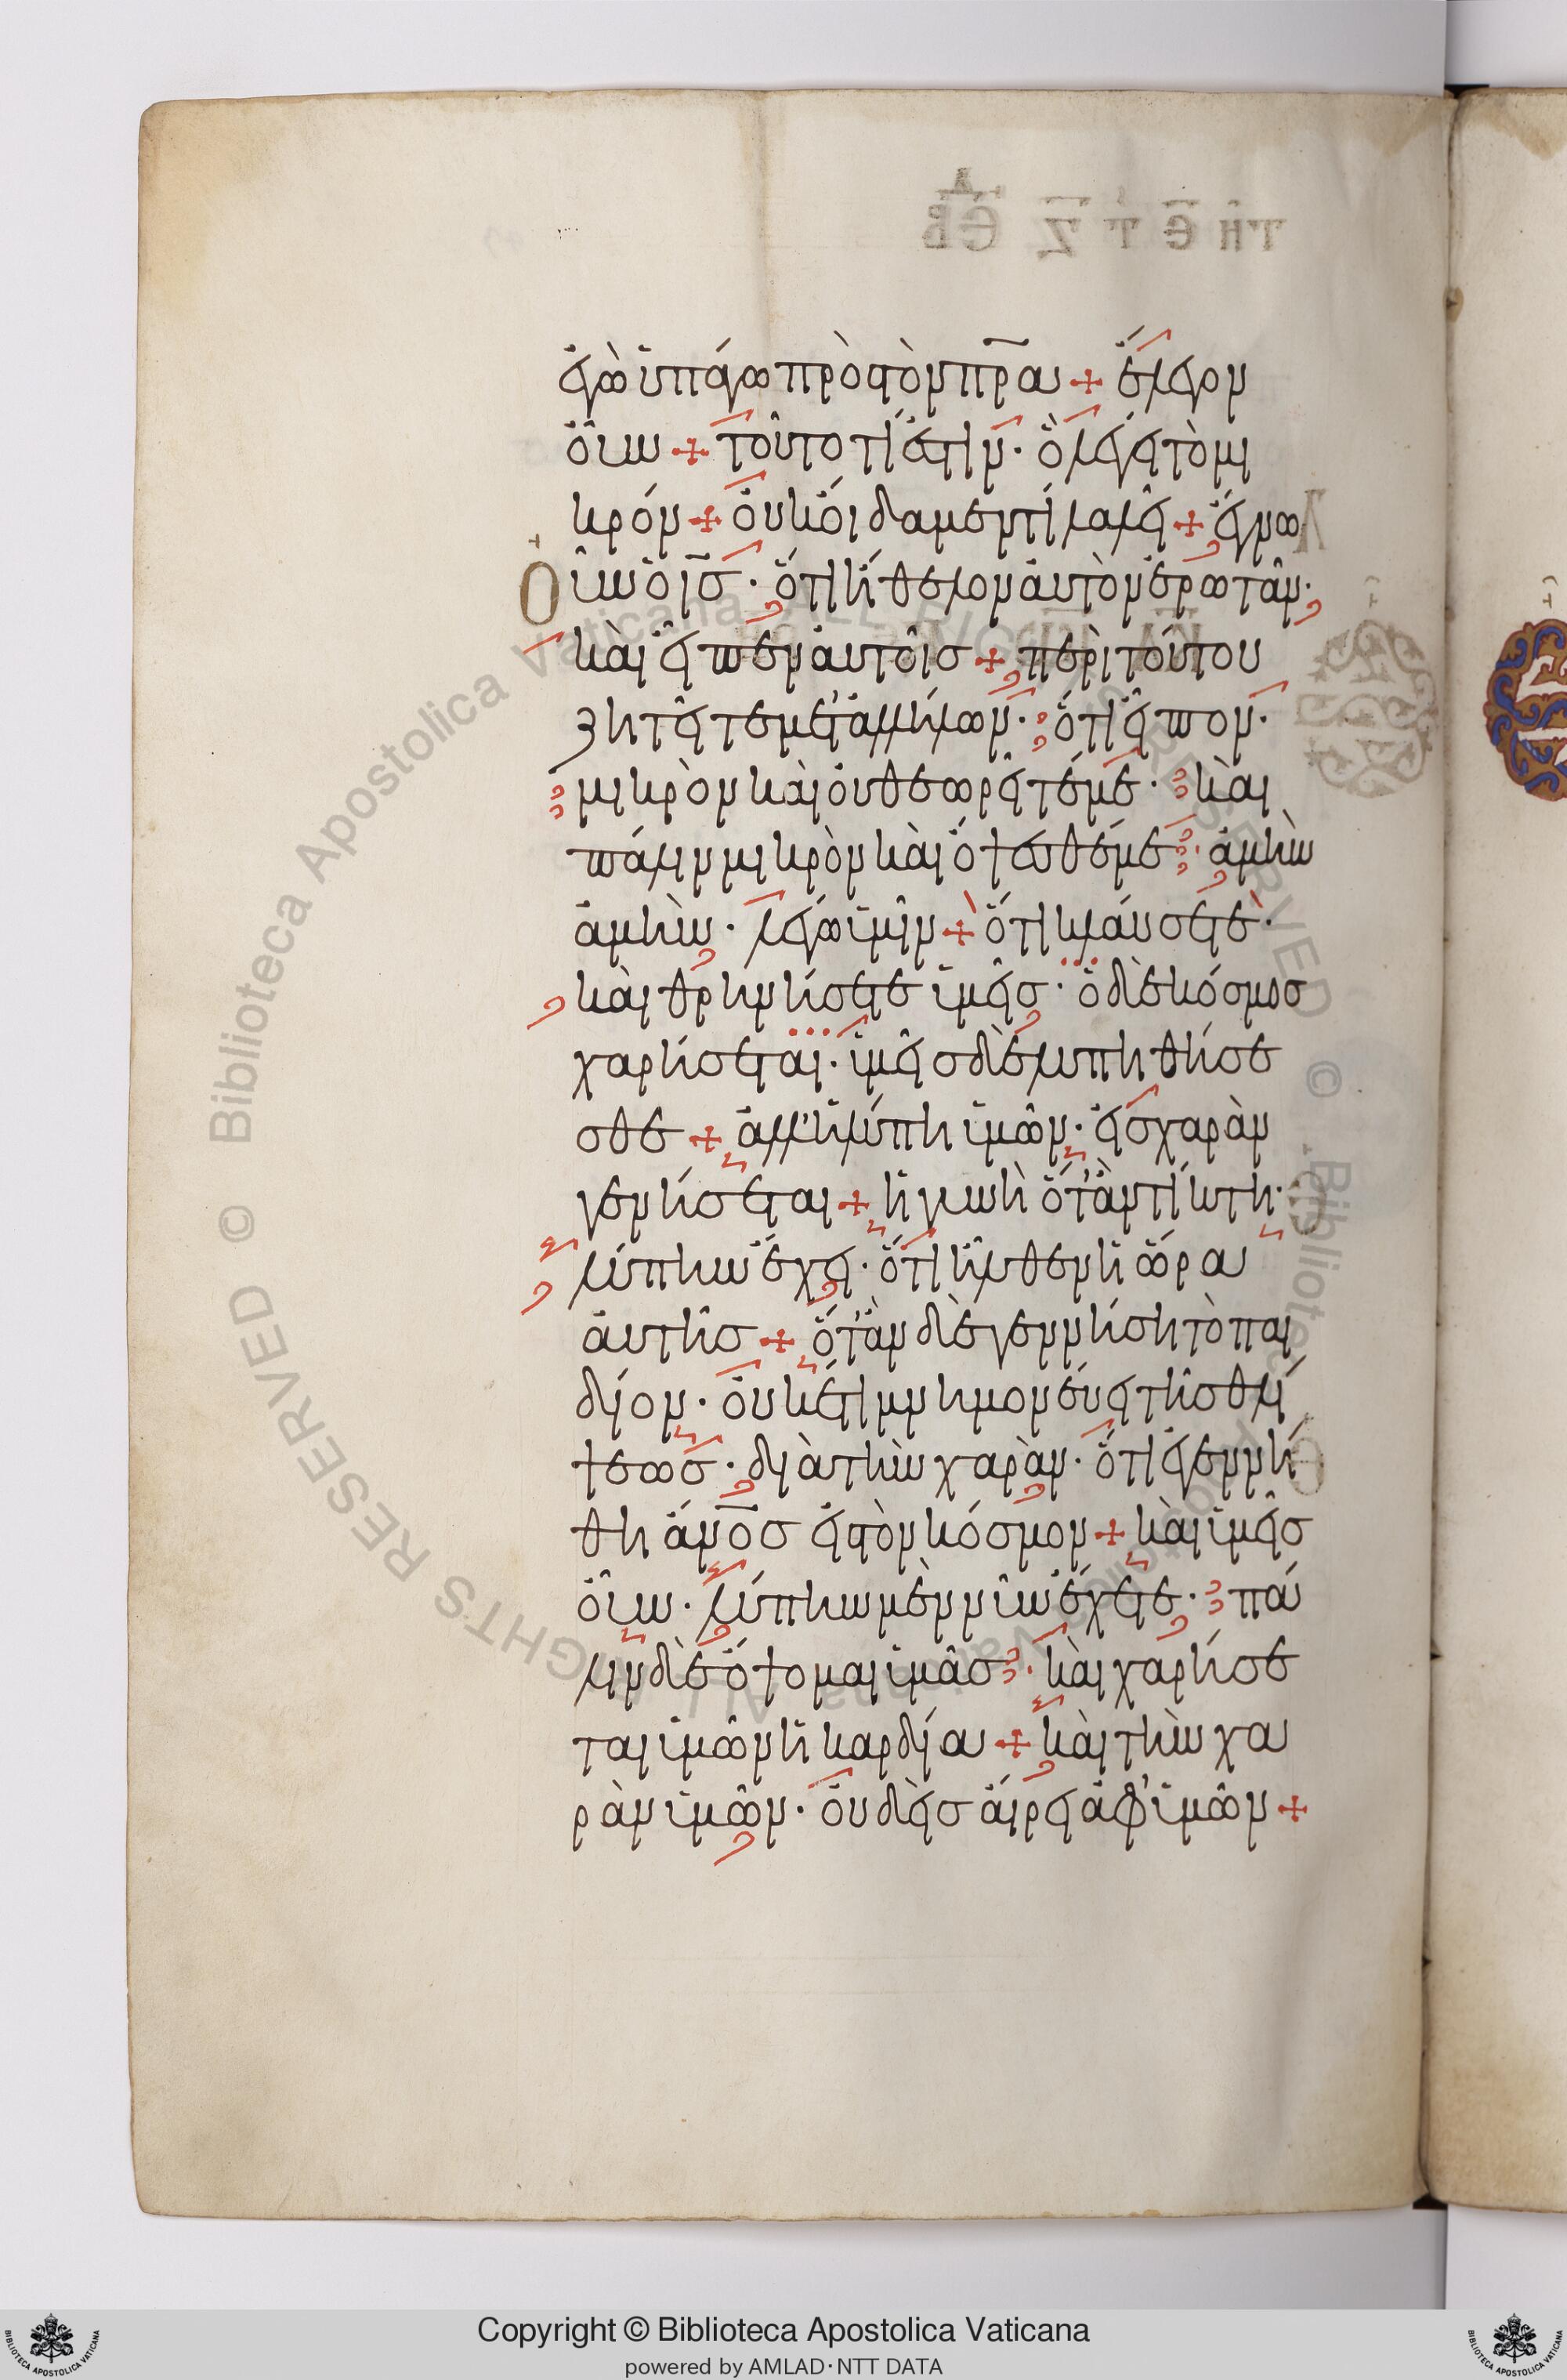 ἐγὼ ὑπάγω πρὸς τὸν π̅ρ̅α + ἔλεγον
οὖν + τοῦτο τί ἐστιν · ὃ λέγει τὸ μι
κρόν + οὐκ οἴδαμεν τί λαλεῖ + ἔγνω
οὖν ὁ ι̅σ̅ · ὅτι ἤθελον αὐτὸν ἐρωτᾶν ·
καὶ εἶπεν αὐτοῖς + περὶ τούτου
ζητεῖτε μετ' ἀλλήλων · ὅτι εἶπον ·
μικρὸν καὶ οὐ θεωρεῖτέ με · καὶ
πάλιν μικρὸν καὶ ὄψεσθέ με · ἀμὴν
ἀμὴν · λέγω ὑμῖν + ὅτι κλαύσετε ·
καὶ θρηνήσετε ὑμεῖς · ὁ δὲ κόσμος
χαρήσεται · ὑμεῖς δὲ λυπηθήσε
σθε + ἀλλ' ἡ λύπη ὑμῶν · εἰς χαρὰν
γενήσεται + ἡ γυνὴ ὅτ' ἂν τίκτη ·
λύπην ἔχει · ὅτι ἦλθεν ἡ ὥρα
αὐτῆς + ὅτ' ἂν δὲ γεννήσῃ τὸ παι
δίον · οὐκέτι μνημονεύει τῆς θλί
ψεως · διὰ τὴν χαρὰν · ὅτι ἐγεννή
θη α̅ν̅ο̅ς εἰς τὸν κόσμον + καὶ ὑμεῖς
οὖν · λύπην μὲν νῦν ἔχετε · πά
λιν δὲ ὄψομαι ὑμᾶς · καὶ χαρήσε
ται ὑμῶν ἡ καρδία + καὶ τὴν χα
ρὰν ὑμῶν · οὐδεὶς αἴρει ἀφ' ὑμῶν +
Copyright © Biblioteca Apostolica Vaticana
powered by AMLAD·NTT DATA